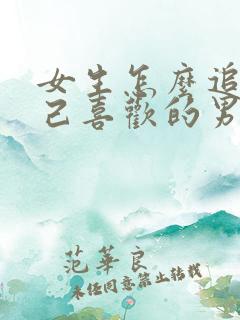 女生怎麼追
己喜歡的男
范華良
未經同意禁止轉載